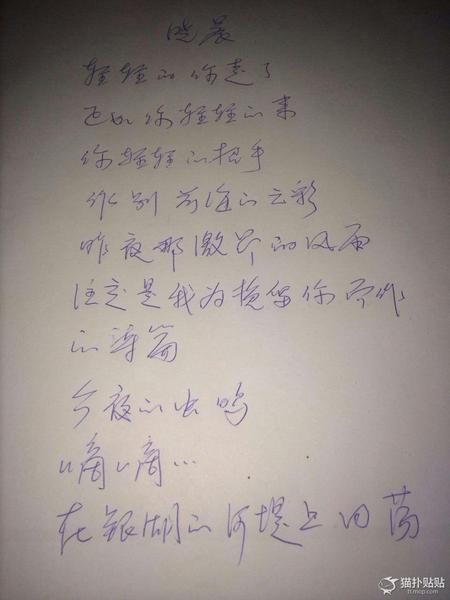 晓晨
轻轻的你走了
正如你轻轻的来
你轻轻的招手
作别 的云彩
昨夜那激昂的风雨
注定是我为挽留你而作
的诗篇
今夜的虫鸣
嘀嘀…
在银湖的河堤上回荡
猫扑贴贴
tt.mop.com